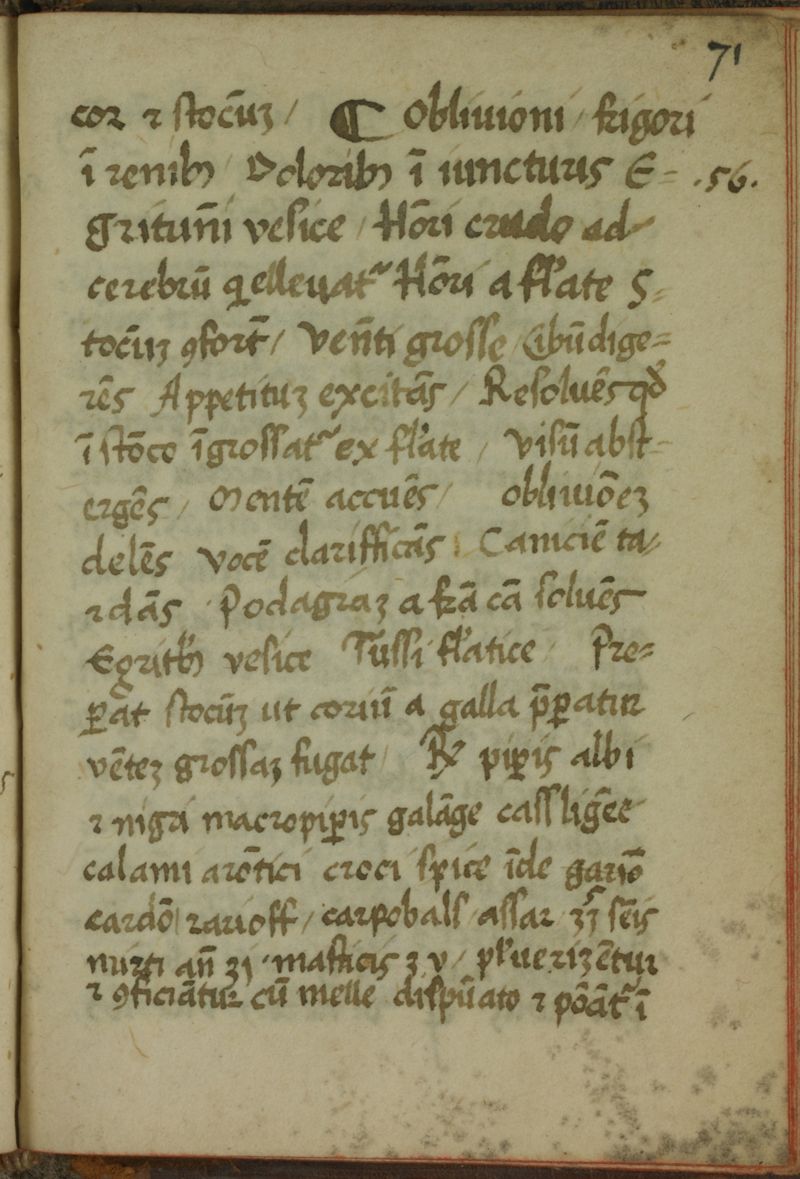 71
cor ⁊ stoc̄uʒ / ¶ Obliuioni / frigori
ī reniꝫ / Doloribꝫ ī iuncturis E= .56.
gritun̄i vesice / Hōri crudo ad
cerebrū q̄ elleuat᷑ Hōri a fl̄ate S=
toc̄uʒ ꝯfort̄ / Ven̄ti grosse / Cibū dige=
rēs Appetituʒ excitās / Resoluēs qđ
ī stōco īgrossat᷑ ex fl̄ate / Visū abst=
ergēs / Mentē accuēs / obliuiōeʒ
delēs Vocē clarifficās Caniciē ta/
rdās Podagraʒ a fr̄a cā soluēs
Egritꝫ vesice Tussi fl̄atice / Pre=
ꝑat stoc̄uʒ ut coriū a galla p̄ꝑatur
vēteʒ grossaʒ fugat / ℞ piꝑis albi
⁊ nigri macropiꝑis galāge cassligēe
calami arōtici croci spice īde gariō
cardō rauoff / carpobals assar ʒʒ sēis
mirti an̄ ʒi masticis ʒ v / pl̄uerizētur
⁊ ꝯficiātur cū melle dispūato ⁊ pōāt᷑ ī